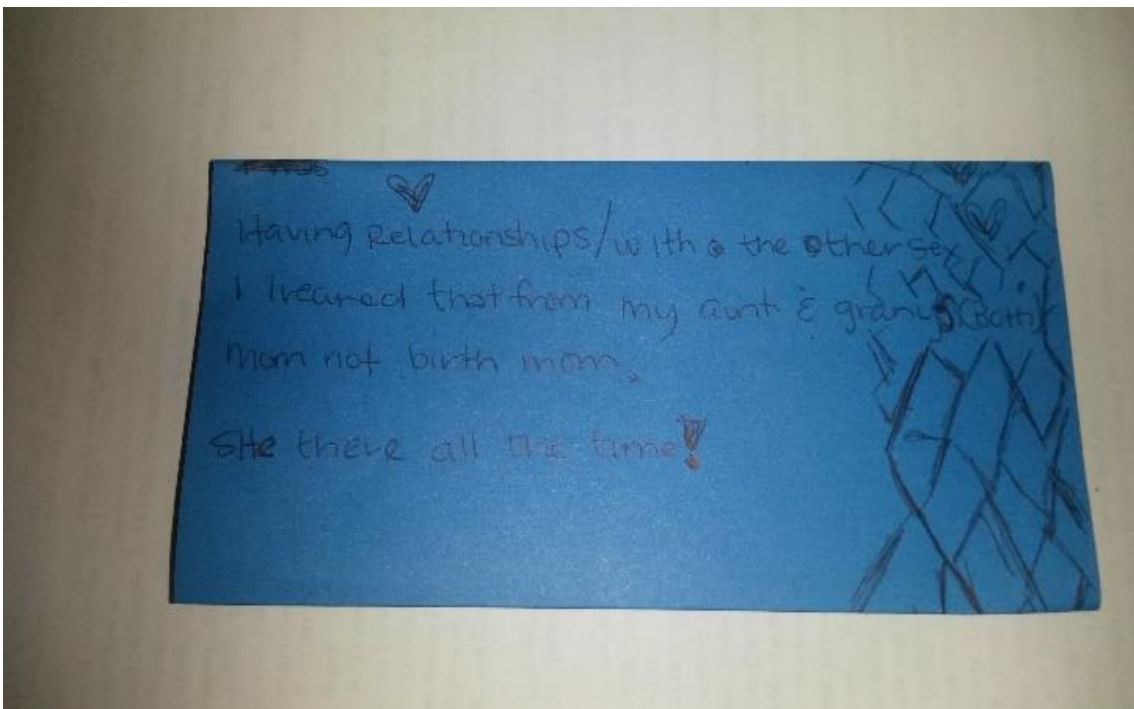 Having Relationships/with the other sex
I lreared that from my aunt & granys (Both)
mom not birth mom.
SHe there all the time!